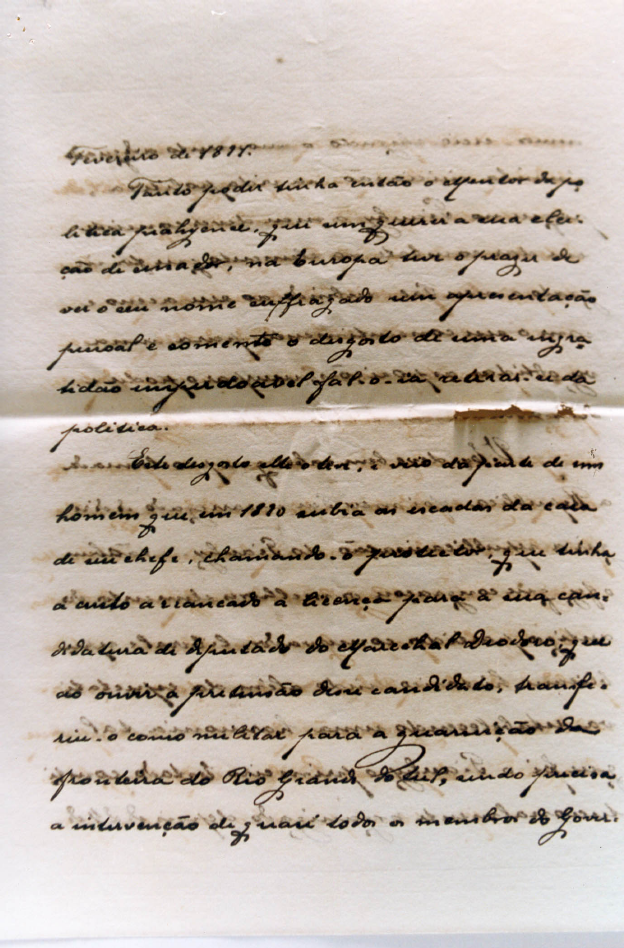 Fevereiro de 1891.
Tanto poder tinha então o Mentor da po
litica , que sem querer a sua elei-
ção de senador, na Europa teve o prazer de
ver o seu nome suffragado sem apresentação
pessoal e somente o desgosto de uma ingra
tidão imperdoavel fal-o-ia retirar-se da
politica.
Este desgosto elle o teve, e veio da parte de um
homem que, em 1890 subia as escadas da casa
de seu chefe, chamando-o protector, que tinha
a custo arrancado a licença para a sua can-
didatura de deputado do Marechal Deodoro, que
ao ouvir a pretensão desse candidato, transfe-
riu-o como militar para a guarnição da
fronteira do Rio Grande do Sul, sendo precisa
a intervenção de quasi todos os membros do Gover-